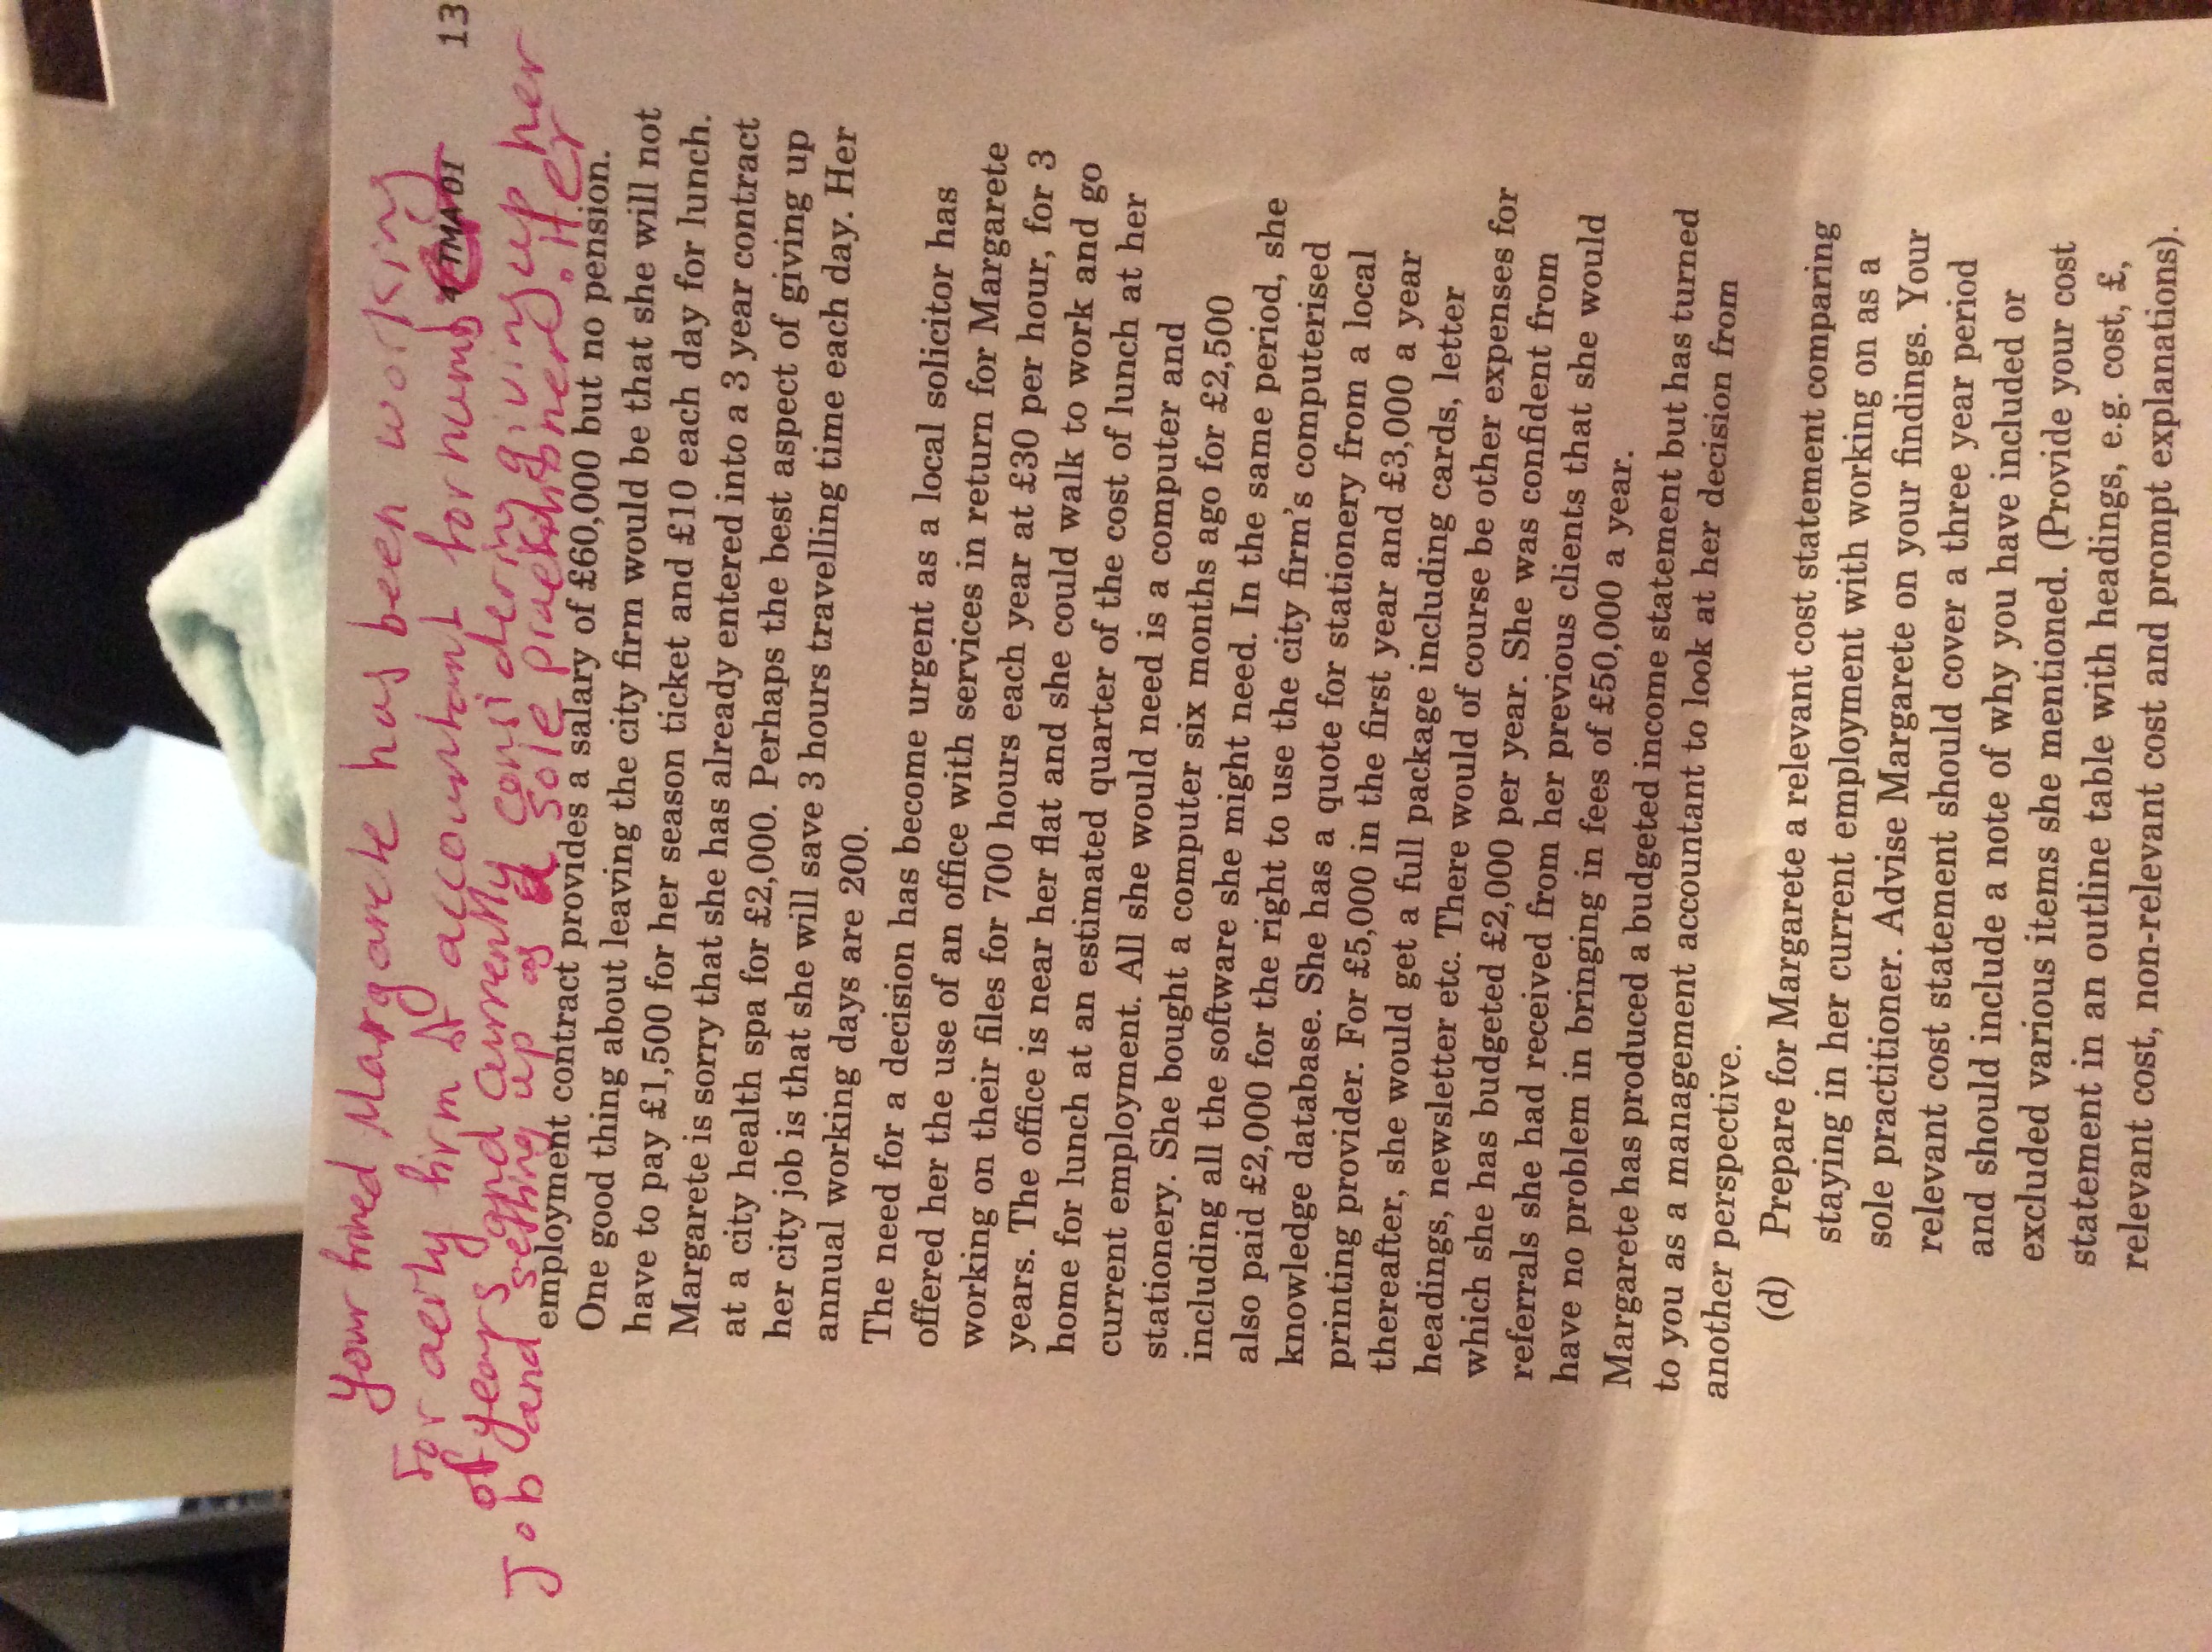 your frined Margarete has been working
For acity firm of accountant for number
4 TMA 01 13
of years and currently considering giving up her
Job and setting up as a sole practitioner. Her
employment contract provides a salary of £60,000 but no pension.
One good thing about leaving the city firm would be that she will not
have to pay £1,500 for her season ticket and £10 each day for lunch.
Margarete is sorry that she has already entered into a 3 year contract
at a city health spa for £2,000. Perhaps the best aspect of giving up
her city job is that she will save 3 hours travelling time each day. Her
annual working days are 200.
The need for a decision has become urgent as a local solicitor has
offered her the use of an office with services in return for Margarete
working on their files for 700 hours each year at £30 per hour, for 3
years. The office is near her flat and she could walk to work and go
home for lunch at an estimated quarter of the cost of lunch at her
current employment. All she would need is a computer and
stationery. She bought a computer six months ago for £2,500
including all the software she might need. In the same period, she
also paid £2,000 for the right to use the city firm's computerised
knowledge database. She has a quote for stationery from a local
printing provider. For £5,000 in the first year and £3,000 a year
thereafter, she would get a full package including cards, letter
headings, newsletter etc. There would of course be other expenses for
which she has budgeted £2,000 per year. She was confident from
referrals she had received from her previous clients that she would
have no problem in bringing in fees of £50,000 a year.
Margarete has produced a budgeted income statement but has turned
to you as a management accountant to look at her decision from
another perspective.
(d) Prepare for Margarete a relevant cost statement comparing
staying in her current employment with working on as a
sole practitioner. Advise Margarete on your findings. Your
relevant cost statement should cover a three year period
and should include a note of why you have included or
excluded various items she mentioned. (Provide your cost
statement in an outline table with headings, e.g. cost, £,
relevant cost, non-relevant cost and prompt explanations).